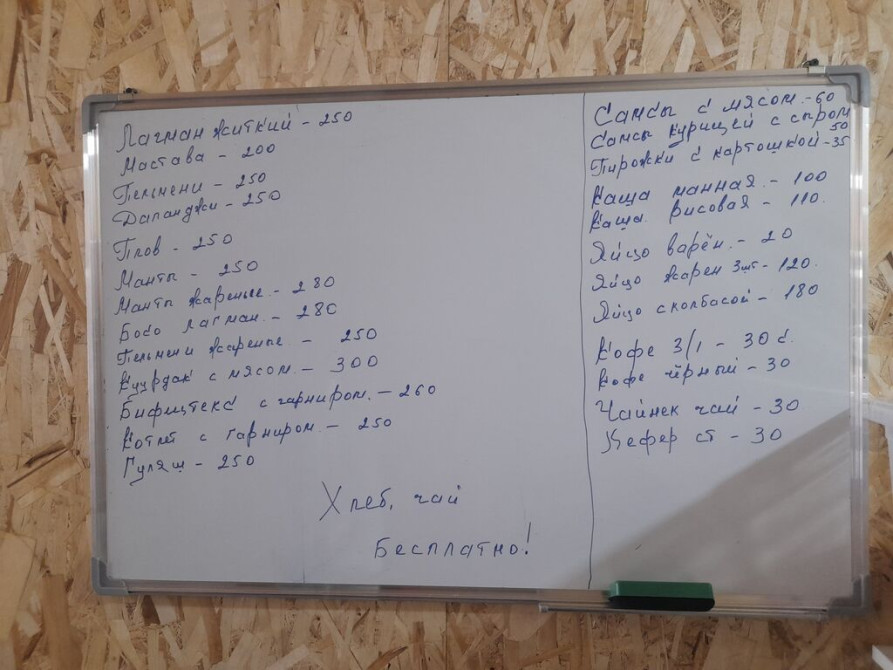 Лагман житкий - 250
Мастава - 200
Пельмени - 250
Дапанджи - 250
Плов - 250
Манты - 250
Манты жареные - 280
Босо лагман. - 280
Пельмени жареные - 250
Куурдак с мясом. - 300
Бифщтекс с гарниром. - 260
Котлет с гарниром. - 250
Гуляш - 250
Хлеб, чай
Бесплатно!
Самсы с мясом. - 60
Самсы курицей с сыром
50
Пирожки с картошкой - 35
Каша манная. - 100
Каша рисовая - 110.
Яйцо варён. - 20
Яйцо жарен 3шт - 120.
Яйцо сколбасой - 180
Кофе 3/1 - 30 с.
Кофе чёрный - 30
Чайнек чай - 30
Кефер ст - 30